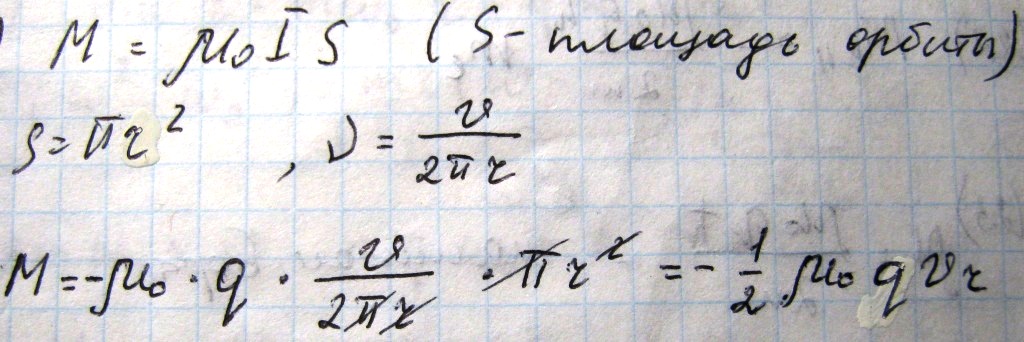 ) M = μ₀ I S (S - площадь орбиты)
S = πr², ν = v / 2πr
M = -μ₀ · q · v / 2πr · πr² = - 1/2 μ₀ q v r